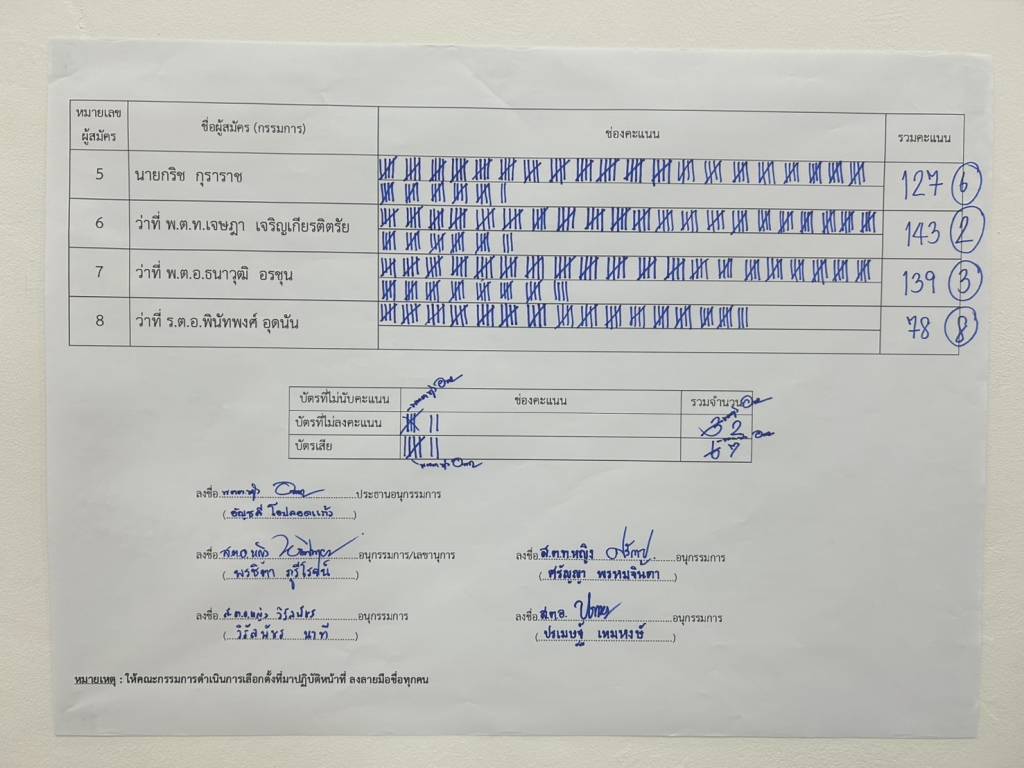 หมายเลขผู้สมัคร ชื่อผู้สมัคร (กรรมการ) ช่องคะแนน รวมคะแนน
5 นายกริช กุราราช 127 6
6 ว่าที่ พ.ต.ท.เจษฎา เจริญเกียรติตรัย 143 2
7 ว่าที่ พ.ต.อ.ธนาวุฒิ อรชุน 139 3
8 ว่าที่ ร.ต.อ.พินัทพงศ์ อุดนัน 78 8
บัตรที่ไม่นับคะแนน ช่องคะแนน รวมจำนวน
บัตรที่ไม่ลงคะแนน 2
บัตรเสีย 7
ลงชื่อ ประธานอนุกรรมการ
ลงชื่อ ส.ต.อ.หญิง อนุกรรมการ/เลขานุการ ลงชื่อ ส.ต.ท.หญิง อนุกรรมการ
(พรชิตา ภูริโรจน์) (ศรัญญา พรหมจินดา)
ลงชื่อ อนุกรรมการ ลงชื่อ ส.ต.อ. อนุกรรมการ
(วิรัลพัชร นาที) (ปรเมษฐ์ เหมหงษ์)
หมายเหตุ : ให้คณะกรรมการดำเนินการเลือกตั้งที่มาปฏิบัติหน้าที่ ลงลายมือชื่อทุกคน